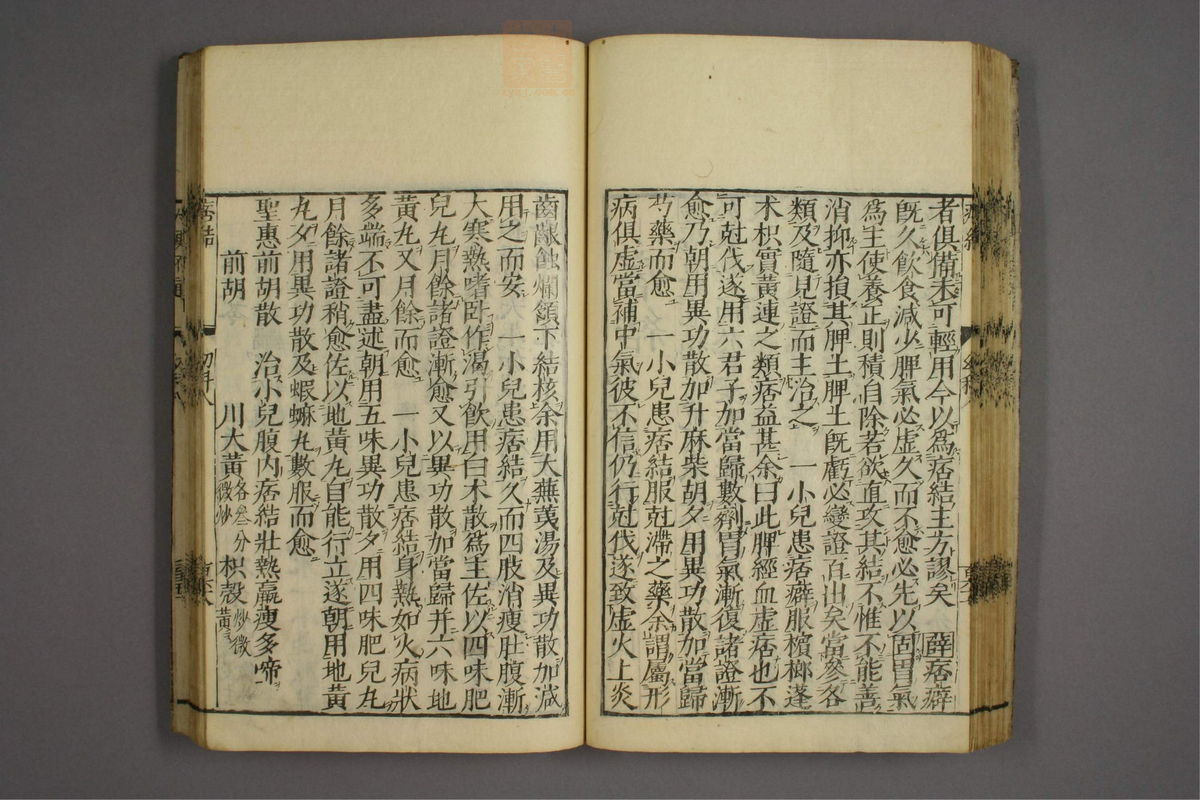 者俱備未可輕用今以爲痞結主方謬矣 薛痞癖
旣久飲食減少脾氣必虛久而不愈必先以固胃氣
爲主使養正則積自除若欲直攻其結不惟不能善
消抑亦損其脾土脾土旣虧必變證百出矣當參各
類及隨見證而主治之 一小兒患痞癖服檳榔蓬
术枳實黃連之類痞益甚余曰此脾經血虛痞也不
可尅伐遂用六君子加當歸數劑胃氣漸復諸證漸
愈乃朝用異功散加升麻柴胡夕用異功散加當歸
芍藥而愈 一小兒患痞結服尅滯之藥余謂屬形
病俱虛當補中氣彼不信仍行尅伐遂致虛火上炎
齒齦蝕爛頷下結核余用大蕪荑湯及異功散加減
用之而安 一小兒患痞結久而四肢消瘦肚腹漸
大寒熱嗜卧作渴引飲用白术散爲主佐以四味肥
兒丸月餘諸證漸愈又以異功散加當歸并六味地
黃丸又月餘而愈 一小兒患痞結身熱如火病狀
多端不可盡述朝用五味異功散夕用四味肥兒丸
月餘諸證稍愈佐以地黃丸自能行立遂朝用地黃
丸夕用異功散及蝦蟆丸數服而愈
聖惠前胡散 治小兒腹內痞結壯熱羸瘦多啼
前胡 川大黃各叁分微炒 枳殼炒微黃
痞結